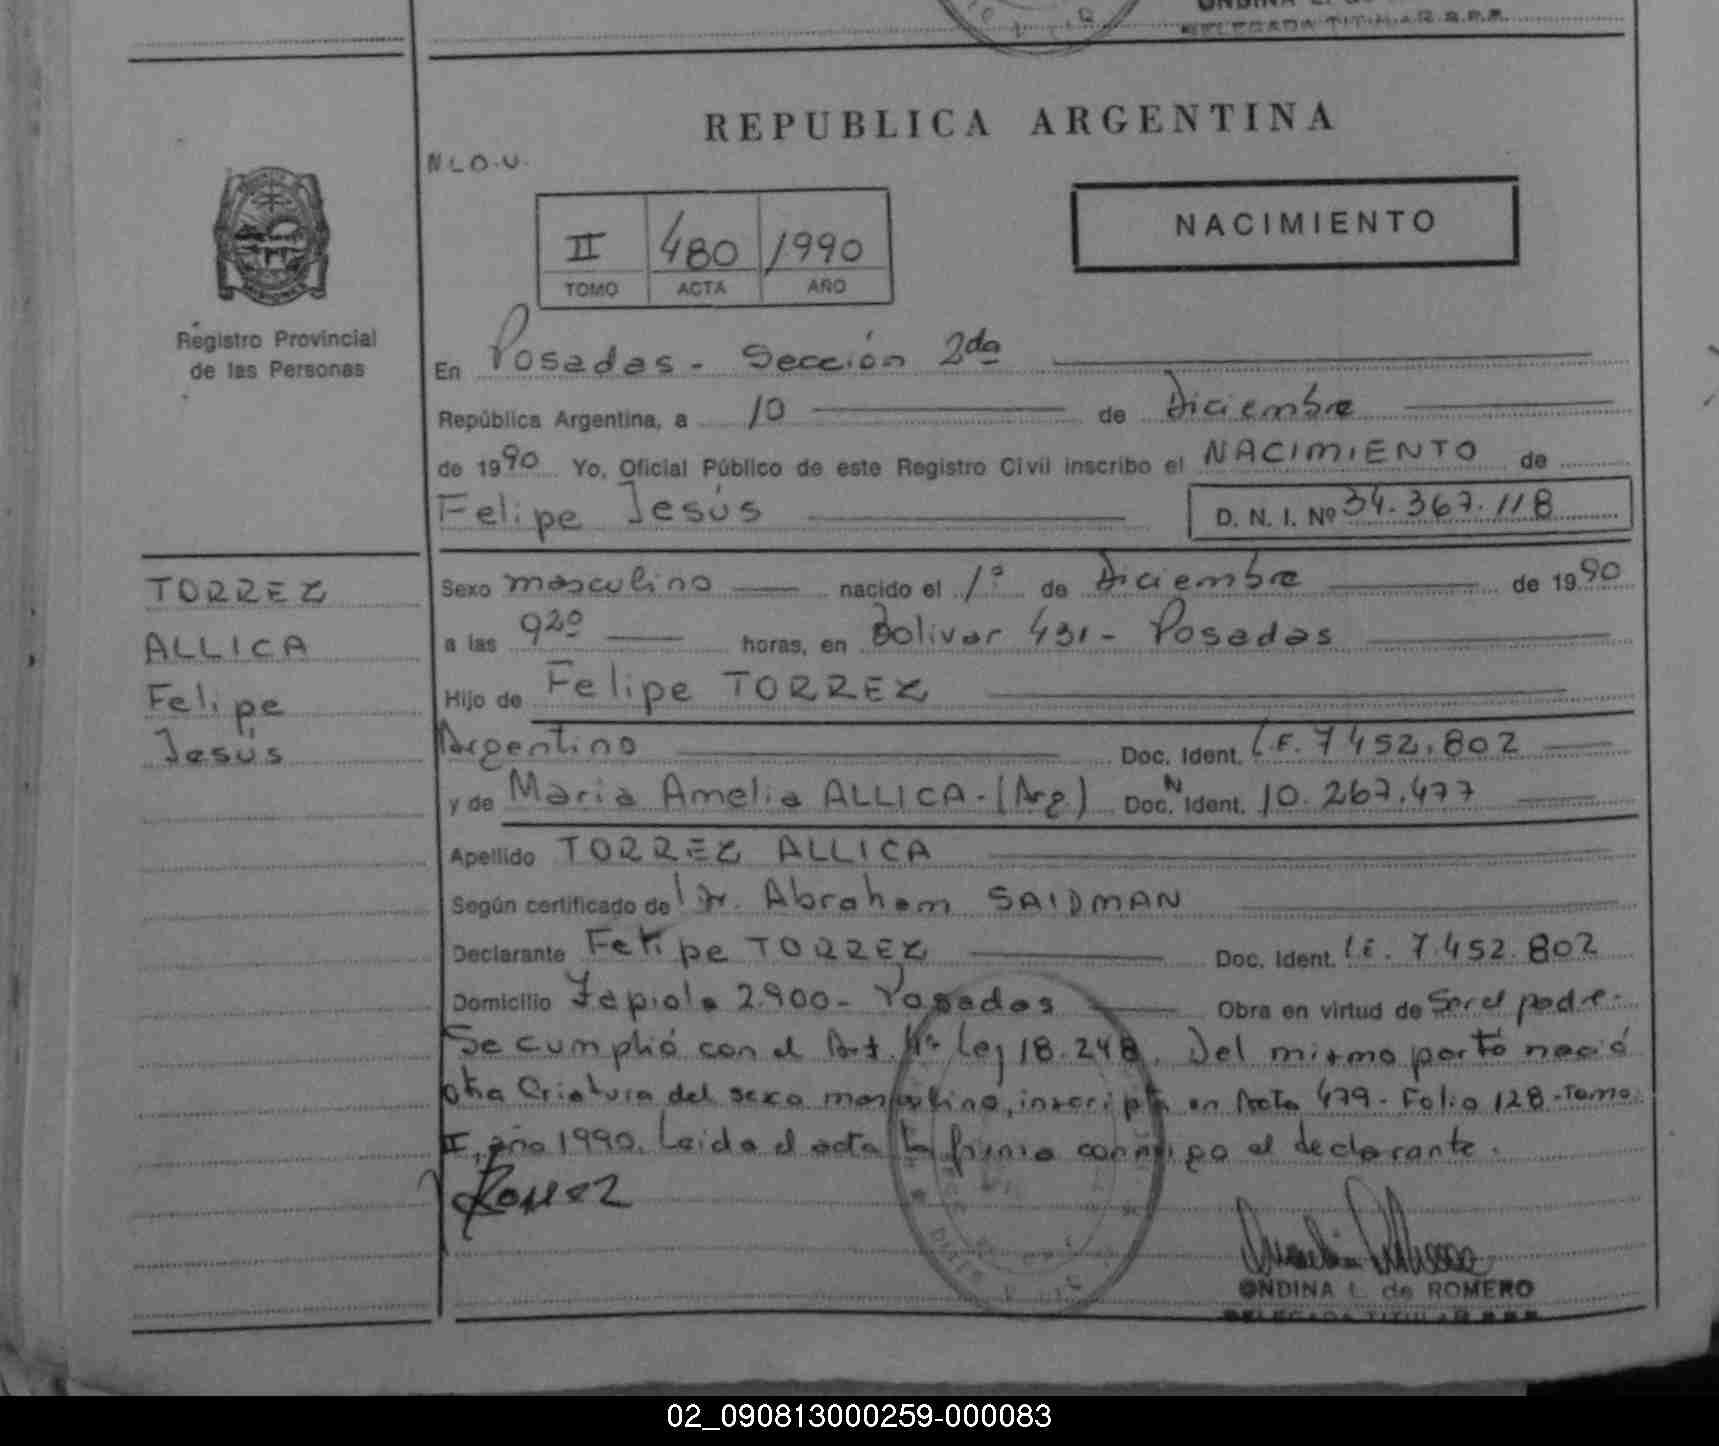 ONDINA L. de
DELEGADA TITULAR R.P.P.
REPUBLICA ARGENTINA
N.L.O.V.
NACIMIENTO
II 480 1990
TOMO ACTA AÑO
Registro Provincial
de las Personas
En Posadas - Sección 2da
República Argentina, a 10 de Diciembre
de 1990 Yo, Oficial Público de este Registro Civil inscribo el NACIMIENTO de
Felipe Jesús D. N. I. Nº 34.367.118
TORREZ
ALLICA
Felipe
Jesús
Sexo masculino nacido el 1º de Diciembre de 1990
a las 920 horas, en Bolivar 431 - Posadas
Hijo de Felipe TORREZ
Argentino Doc. Ident. L.E. 7452.802
y de Maria Amelia ALLICA - (Arg) Doc. N Ident. 10.267.477
Apellido TORREZ ALLICA
Según certificado de Dr. Abraham SAIDMAN
Declarante Felipe TORREZ Doc. Ident. L.E. 7.452.802
Domicilio Zapiola 2.900 - Posadas Obra en virtud de Ser el padre.
Se cumplió con el Art. Ley 18.248. Del mismo parto nació
otra Criatura del sexo masculino, inscripta en Acta 479 - Folio 128 - Tomo
II, año 1990. Leida el acta la firma conmigo el declarante.
ONDINA L. de ROMERO
DELEGADA TITULAR R.P.P.
02_090813000259-000083